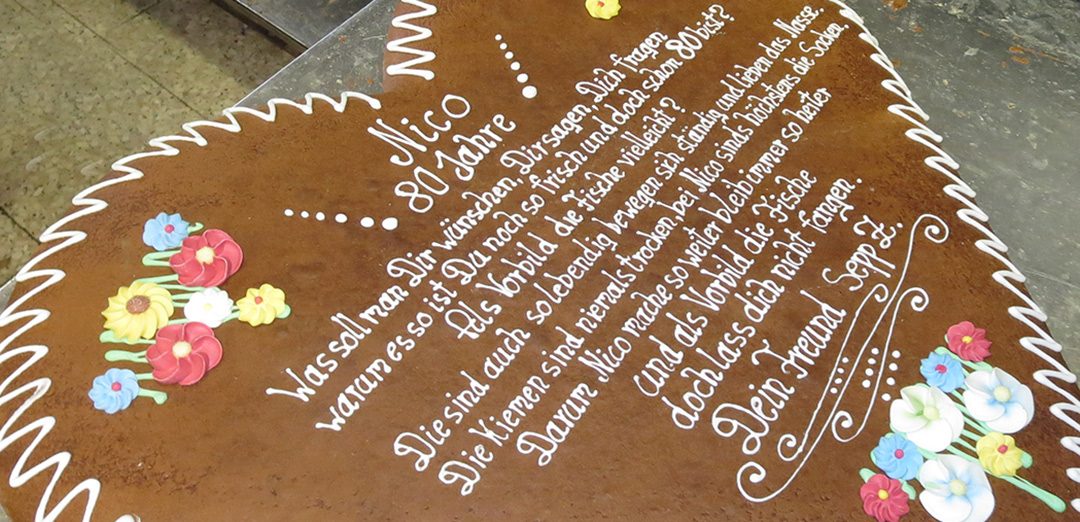 Nico
80 Jahre
Was soll man Dir wünschen, Dir sagen, Dich fragen
warum es so ist Du noch so frisch und doch schon 80 bist?
Als Vorbild die Fische vielleicht?
Die sind auch so lebendig bewegen sich ständig und lieben das Nasse.
Die Kiemen sind niemals trocken, bei Nico sinds höchstens die Socken.
Darum Nico mache so weiter bleib immer so heiter
und als Vorbild die Fische
doch lass dich nicht fangen.
Dein Freund Sepp Z.